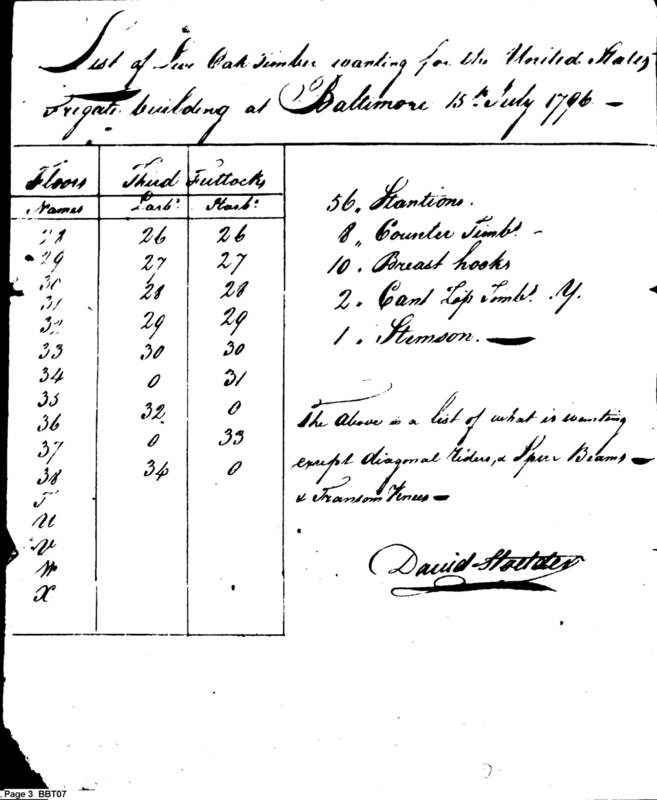 List of Live Oak Timber wanting for the United States
Frigate building at Baltimore 15th July 1796 —
Floors Third Futtocks
Names Larbd. Starbd.
28 26 26
29 27 27
30 28 28
31 29 29
32 30 30
33 0 31
34 32 0
35 0 33
36 34 0
37
38
T
U
V
W
X
56 „ Stantions.
8 „ Counter Timbs. -
10 „ Breast hooks
2 „ Cant Top Timbs. Y.
1 „ Stemson. —
The Above is a list of what is wanting
except diagonal riders, & Spur Beams —
& Transom Knees —
David Stodder
Page 3 BBT07